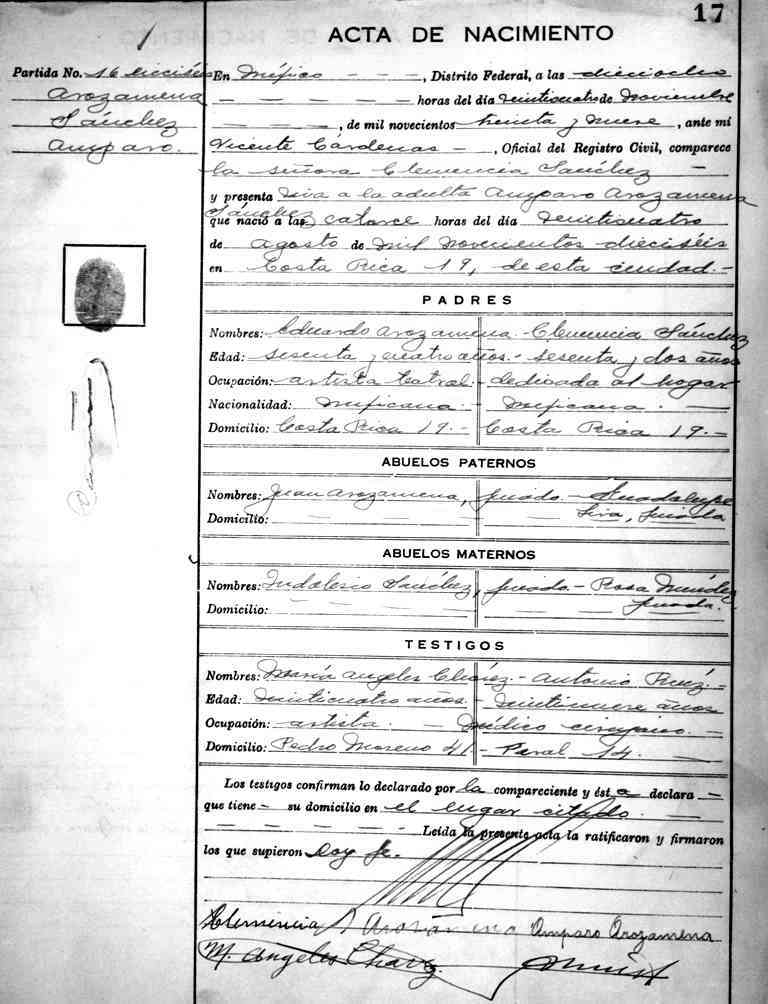 17
ACTA DE NACIMIENTO
Partida No. 16 dieciséis
Arozamena
Sánchez
Amparo.
En México - - -, Distrito Federal, a las dieciocho
- - - - - horas del día veinticuatro de Noviembre
- - - -, de mil novecientos treinta y nueve, ante mi
Vicente Cárdenas -, Oficial del Registro Civil, comparece
la señora Clemencia Sánchez -
y presenta viva a la adulta Amparo Arozamena
Sánchez
que nació a las catorce horas del día veinticuatro
de agosto de mil novecientos dieciséis
en Costa Rica 19, de esta ciudad.-
PADRES
Nombres: Eduardo Arozamena.- Clemencia Sánchez
Edad: sesenta y cuatro años.- sesenta y dos años
Ocupación: artista teatral.- dedicada al hogar
Nacionalidad: mexicana.- mexicana. -
Domicilio: Costa Rica 19.- Costa Rica 19.-
ABUELOS PATERNOS
Nombres: Juan Arozamena, finado.- Guadalupe
Domicilio: - - - - finada
ABUELOS MATERNOS
Nombres: Indalecio Sánchez, finado.- Rosa Méndez
Domicilio: - - - - finada.
TESTIGOS
Nombres: María Angeles - Antonio Ruiz.-
Edad: veinticuatro años.- veintinueve años
Ocupación: artista. - Médico cirujano. -
Domicilio: Pedro Moreno 41.- Parral 14. -
Los testigos confirman lo declarado por la compareciente y ést a declara -
que tiene - su domicilio en el lugar citado. -
- - - - - Leída la presente acta la ratificaron y firmaron
los que supieron Doy fe.
Clemencia S Arozamena Amparo Arozamena
M. Angeles